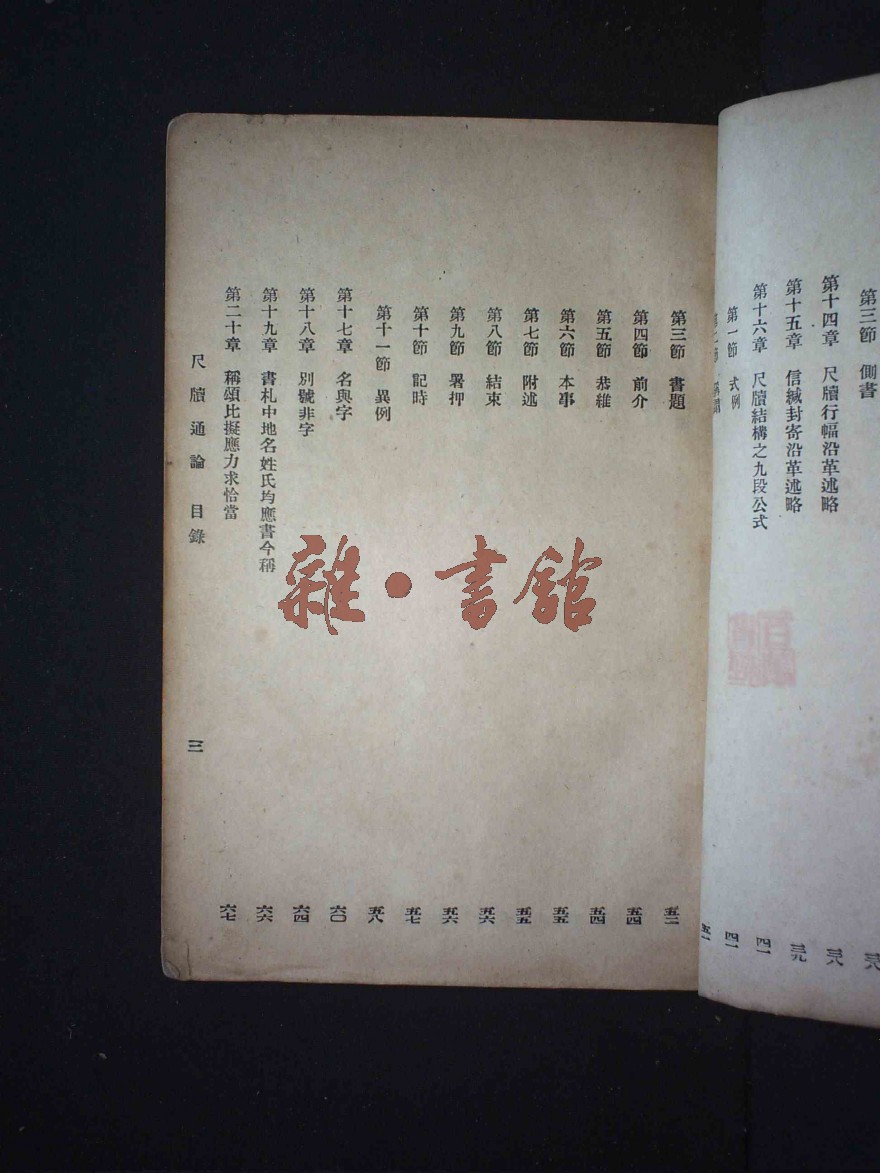 第三節 側書 三八
第十四章 尺牘行幅沿革述略 三八
第十五章 信緘封寄沿革述略 三九
第十六章 尺牘結構之九段公式 四一
第一節 式例 四一
第二節 稱謂
第三節 書題 五二
第四節 前介 五四
第五節 恭維 五四
第六節 本事 五五
第七節 附述 五五
第八節 結束 五六
第九節 署押 五六
第十節 記時 五七
第十一節 異例 五八
第十七章 名與字 六〇
第十八章 別號非字 六四
第十九章 書札中地名姓氏均應書今稱 六六
第二十章 稱頌比擬應力求恰當 六七
尺牘通論 目錄 三
雜·書館